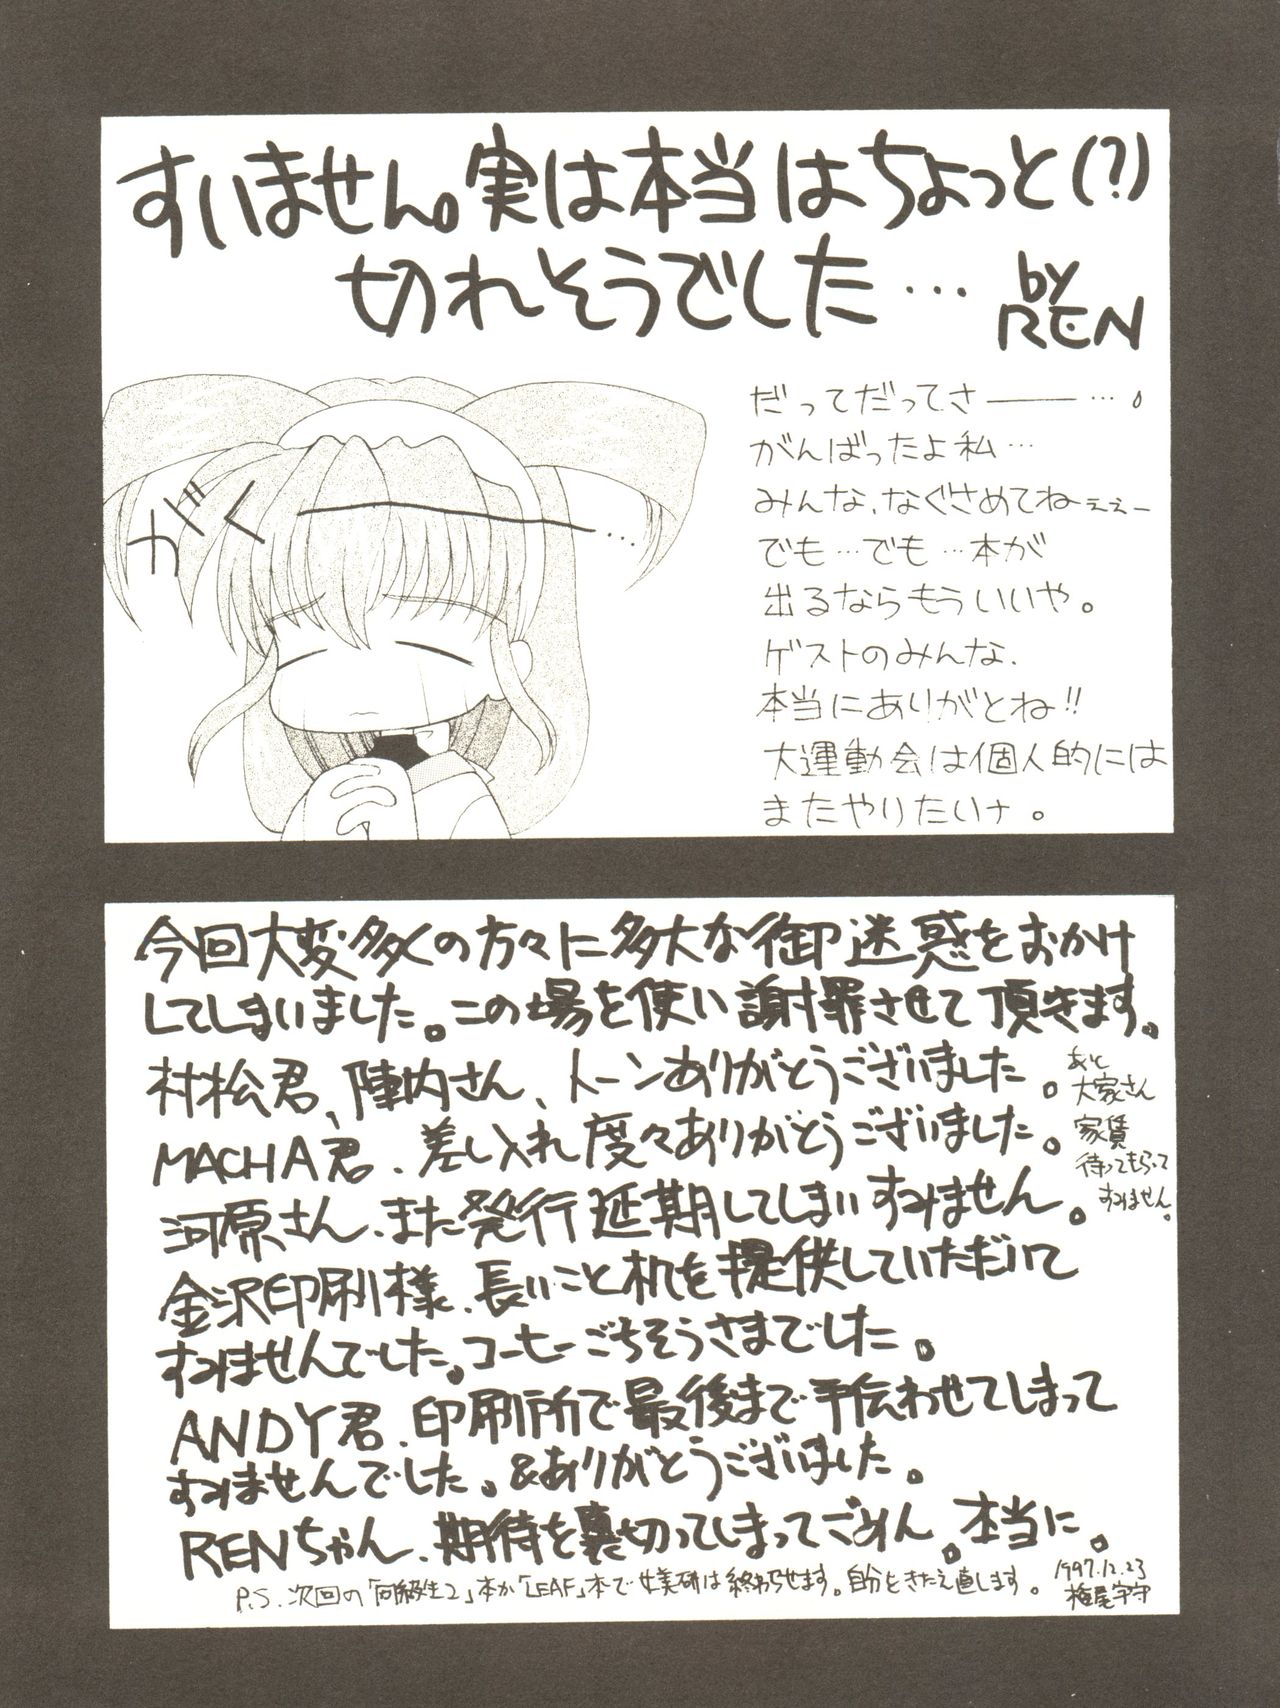 すいません。実は本当はちょっと(?)
切れそうでした… by REN
だってだってさ――…。
がんばったよ私…
みんな、なぐさめてねぇぇー
でも…でも…本が
出るならもういいや。
ゲストのみんな、
本当にありがとね!!
大運動会は個人的には
またやりたいナ。
がく――…
今回大変多くの方々に多大な御迷惑をおかけ
してしまいました。この場を使い謝罪させて頂きます。
村松君、陣内さん、トーンありがとうございました。
MACHA君、差し入れ度々ありがとうございました。
河原さん、また発行延期してしまいすみません。
あと
大家さん
家賃
待ってもらって
すみません。
金沢印刷様、長いこと机を提供していただいて
すみませんでした。コーヒーごちそうさまでした。
ANDY君、印刷所で最後まで手伝わせてしまって
すみませんでした。&ありがとうございました。
RENちゃん、期待を裏切ってしまってごめん。本当に。
P.S. 次回の「同級生2」本か「LEAF」本で女美研は終わらせます。自分をきたえ直します。
1997.12.23